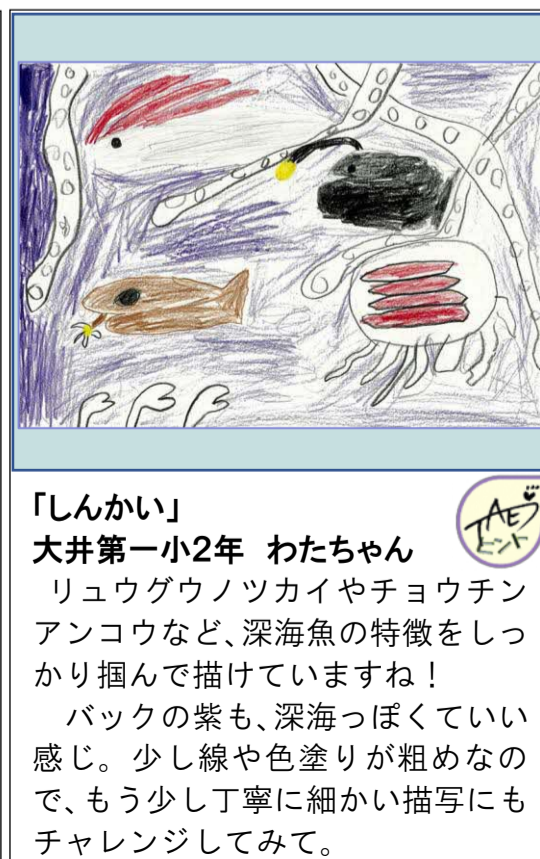 「しんかい」
大井第一小2年 わたちゃん
TAEコ
ヒント
リュウグウノツカイやチョウチン
アンコウなど、深海魚の特徴をしっ
かり掴んで描けていますね！
バックの紫も、深海っぽくていい
感じ。少し線や色塗りが粗めなの
で、もう少し丁寧に細かい描写にも
チャレンジしてみて。